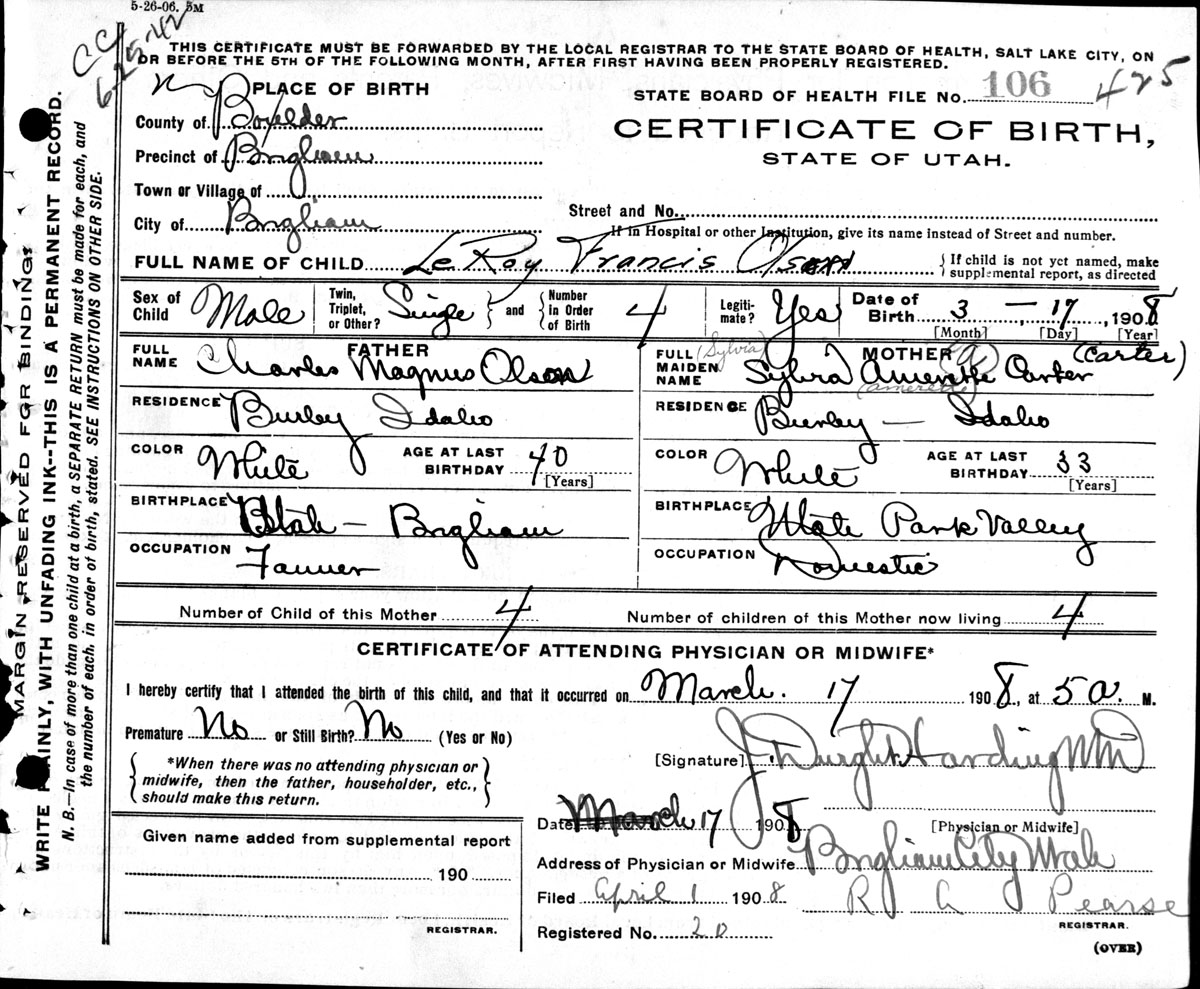 5-26-06. 5M
CC
6-25-42
THIS CERTIFICATE MUST BE FORWARDED BY THE LOCAL REGISTRAR TO THE STATE BOARD OF HEALTH, SALT LAKE CITY, ON
OR BEFORE THE 5TH OF THE FOLLOWING MONTH, AFTER FIRST HAVING BEEN PROPERLY REGISTERED.
PLACE OF BIRTH
STATE BOARD OF HEALTH FILE No. 106 425
County of Boxelder
CERTIFICATE OF BIRTH,
Precinct of Brigham
STATE OF UTAH.
Town or Village of
City of Brigham
Street and No.
If in Hospital or other Institution, give its name instead of Street and number.
FULL NAME OF CHILD LeRoy Francis Olson
{If child is not yet named, make
supplemental report, as directed
Sex of Child Male
Twin, Triplet, or Other? Single } and { Number In Order of Birth 4
Legiti-mate? Yes
Date of Birth 3 - 17, 1908
[Month] [Day] [Year]
FATHER
FULL NAME Charles Magnus Olson
RESIDENCE Burley Idaho
COLOR White AGE AT LAST BIRTHDAY 40
[Years]
BIRTHPLACE Utah - Brigham
OCCUPATION Farmer
MOTHER
(Sylvia) (a) (Carter)
FULL MAIDEN NAME Sylvia Amerette Carter
(amerette)
RESIDENCE Burley - Idaho
COLOR White AGE AT LAST BIRTHDAY 33
[Years]
BIRTHPLACE Utah Park Valley
OCCUPATION Domestic
Number of Child of this Mother 4
Number of children of this Mother now living 4
CERTIFICATE OF ATTENDING PHYSICIAN OR MIDWIFE*
I hereby certify that I attended the birth of this child, and that it occurred on March. 17 1908, at 5 a. M.
Premature No or Still Birth? No (Yes or No)
{ *When there was no attending physician or
midwife, then the father, householder, etc.,
should make this return. }
[Signature] J. Dwight Harding MD
Date March 17 1908
[Physician or Midwife]
Given name added from supplemental report
190
REGISTRAR.
Address of Physician or Midwife Brigham City Utah
Filed April 1 1908 R A Pearse
REGISTRAR.
Registered No. 20
(OVER)
MARGIN RESERVED FOR BINDING:
WRITE PLAINLY, WITH UNFADING INK--THIS IS A PERMANENT RECORD.
N. B.—In case of more than one child at a birth, a SEPARATE RETURN must be made for each, and
the number of each, in order of birth, stated. SEE INSTRUCTIONS ON OTHER SIDE.